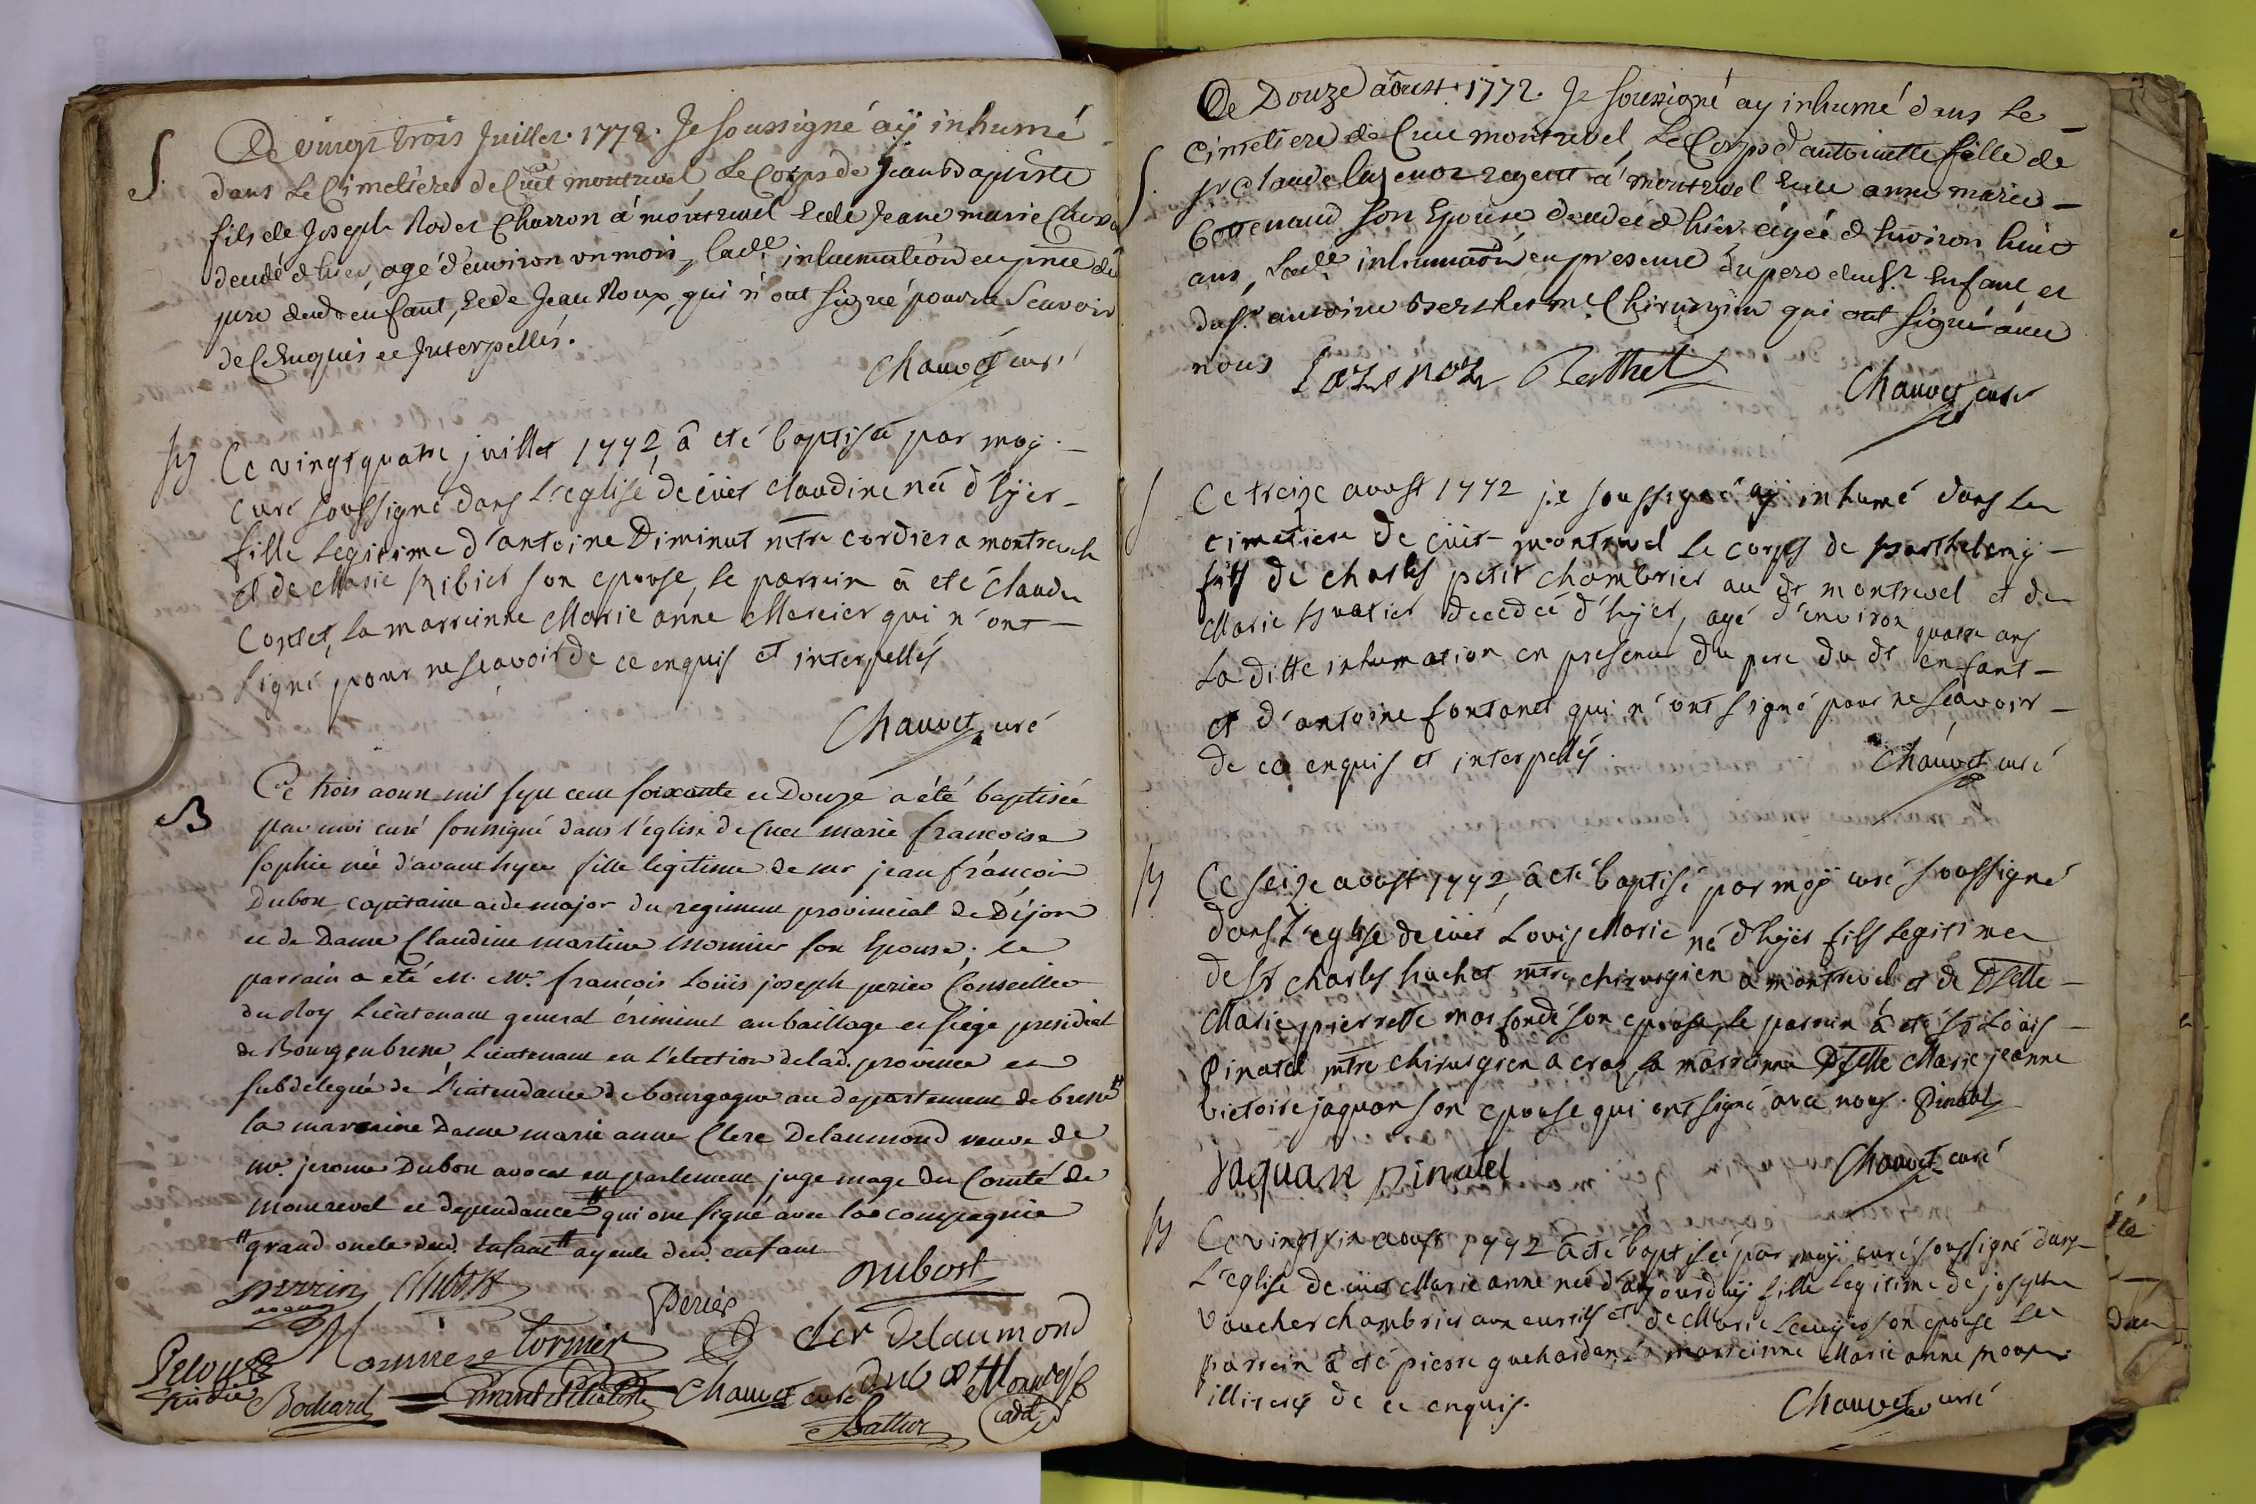 S.
Ce vingt trois Juillet 1772. Je soussigné ay inhumé
dans le Cimetiere de Cuet montrevel, le Corps de Jean baptiste
fils de Joseph Charron á montrevel et de Jeane marie
decedé d'hier, agé d'environ un mois, lade inhumation en pnce du
pere dudt enfant, et de Jean Roux, qui n'ont signé pour ne scavoir
de ce enquis et Interpellés.
Chauvet curé
Ce vingt quatre juillet 1772, â eté baptisée par moy
curé soussigné dans l'eglise de cuet claudine née d'hyer
fille legitime d'antoine Diminut mtre cordier a montrevel
et de Marie son epouse, le parrein â eté claude
la marreinne Marie anne Mercier qui n'ont
signé pour ne scavoir de ce enquis et interpellés
Chauvet curé
B
Ce trois aoust mil sept cent soixante et Douze a été baptisée
par moi curé soussigné dans l'église de Cuet marie francoise
sophie née d'avant hyer fille legitime de mr jean françois
Dubost capitaine aide major du regiment provincial de Dijon
et de Dame Claudine martine Monnier son Epouse; le
parrain a été M. Mr. françois Louis joseph perier Conseiller
du Roy Lieutenant general criminel au baillage et siége presidial
de Bourg en bresse, Lieutenant en l'élection de lad. province et
subdelegué de l'intendance de bourgogne au departement de bresse #
la marraine Dame marie anne Clerc Delaumond veuve de
mr. jerome Dubost avocat en parlement juge mage du Comté de
montrevel et dependances # qui ont signé avec la compagnie
# grand oncle dud. Enfant # ayeule dud. enfant
perrin Dubost Perier Dubost
Monnier Cler Delaumond
Chauvet curé dubost
Bochard
S.
Ce Douze aoust 1772. Je soussigné ay inhumé dans le
cimetiere de Cuet montrevel, le Corps d'antoinette fille de
Sr Claude Lazenoz regent á montrevel et de anne marie
son Epouse decedée d'hier agée d'Environ huit
ans, Lade inhumaon en presence du pere dudt Enfant et
du Sr. antoine Berthet me Chirurgien qui ont signé avec
nous Lazenoz Berthet
Chauvet curé
S
Ce treize aoust 1772 je soussigné ay inhumé dans le
cimetiere de cuet montrevel le corps de Barthelemy
fils de charles petit chambrier au dt montrevel et de
Marie decedé d'hyer, agé d'environ quatre ans
la ditte inhumation en presence du pere du dt enfant
et d'antoine fontanet qui n'ont signé pour ne scavoir
de ce enquis et interpellés.
Chauvet curé
Ce seize aoust 1772, â eté baptisé par moy curé soussigné
dans l'eglise de cuet Louis Marie né d'hyer fils legitime
de Sr charles huchet mtre chirurgien a montrevel et de Dselle
Marie pierrette son epouse, le parrein â eté Sr Loüis
Pinatel mtre chirurgien a cras, la marreinne Dselle Marie jeanne
victoire jaquan son epouse qui ont signé avec nous. Pinatel
Jaquan pinatel
Chauvet curé
Ce vingt six aoust 1772 â eté baptisée par moy curé soussigné dans
l'eglise de cuet Marie anne née d'aujourduy fille legitime de joseph
Voucher chambrier et de Marie son epouse le
parrein â eté pierre la marreinne Marie anne
illiterés de ce enquis.
Chauvet curé